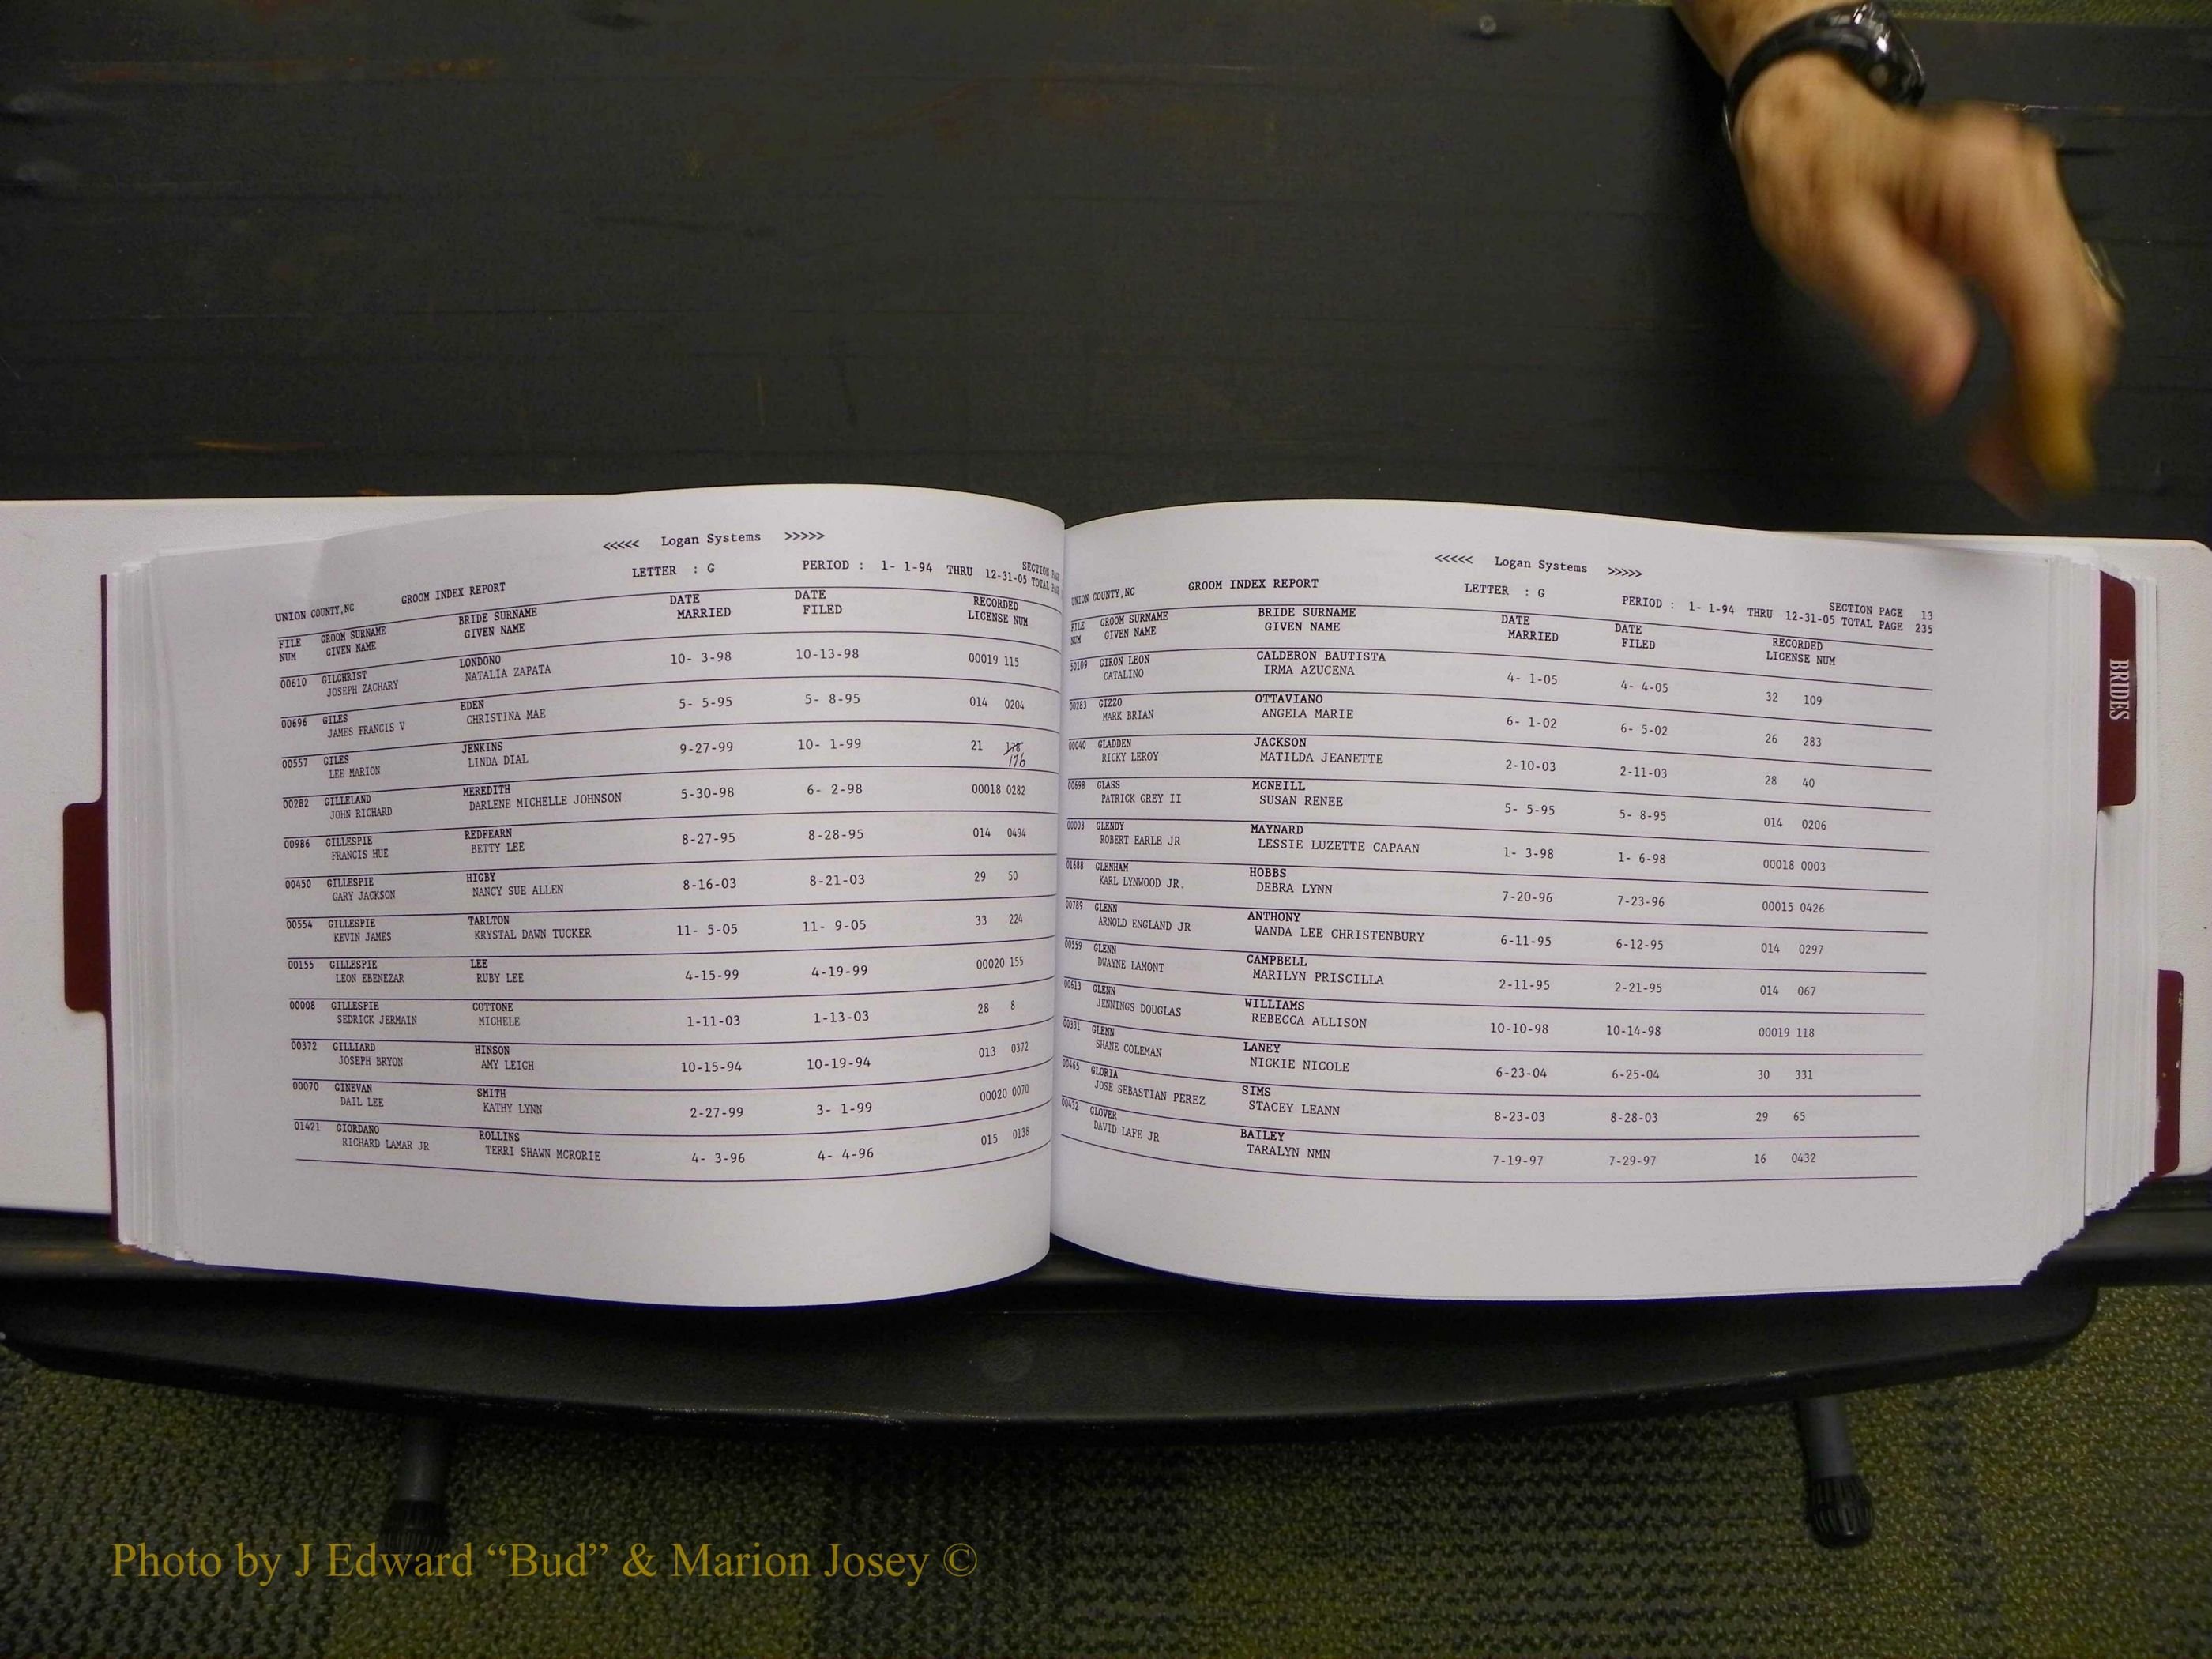 <<<<< Logan Systems >>>>>
UNION COUNTY,NC GROOM INDEX REPORT LETTER : G PERIOD : 1- 1-94 THRU 12-31-05 SECTION
TOTAL
FILE GROOM SURNAME BRIDE SURNAME DATE DATE RECORDED
NUM GIVEN NAME GIVEN NAME MARRIED FILED LICENSE NUM
00610 GILCHRIST LONDONO 10- 3-98 10-13-98 00019 115
JOSEPH ZACHARY NATALIA ZAPATA
00696 GILES EDEN 5- 5-95 5- 8-95 014 0204
JAMES FRANCIS V CHRISTINA MAE
00557 GILES JENKINS 9-27-99 10- 1-99 21 178
LEE MARION LINDA DIAL 176
00282 GILLELAND MEREDITH 5-30-98 6- 2-98 00018 0282
JOHN RICHARD DARLENE MICHELLE JOHNSON
00986 GILLESPIE REDFEARN 8-27-95 8-28-95 014 0494
FRANCIS HUE BETTY LEE
00450 GILLESPIE HIGBY 8-16-03 8-21-03 29 50
GARY JACKSON NANCY SUE ALLEN
00554 GILLESPIE TARLTON 11- 5-05 11- 9-05 33 224
KEVIN JAMES KRYSTAL DAWN TUCKER
00155 GILLESPIE LEE 4-15-99 4-19-99 00020 155
LEON EBENEZAR RUBY LEE
00008 GILLESPIE COTTONE 1-11-03 1-13-03 28 8
SEDRICK JERMAIN MICHELE
00372 GILLIARD HINSON 10-15-94 10-19-94 013 0372
JOSEPH BRYON AMY LEIGH
00070 GINEVAN SMITH 2-27-99 3- 1-99 00020 0070
DAIL LEE KATHY LYNN
01421 GIORDANO ROLLINS 4- 3-96 4- 4-96 015 0138
RICHARD LAMAR JR TERRI SHAWN MCRORIE
<<<<< Logan Systems >>>>>
UNION COUNTY,NC GROOM INDEX REPORT LETTER : G PERIOD : 1- 1-94 THRU 12-31-05 SECTION PAGE 13
TOTAL PAGE 235
FILE GROOM SURNAME BRIDE SURNAME DATE DATE RECORDED
NUM GIVEN NAME GIVEN NAME MARRIED FILED LICENSE NUM
50109 GIRON LEON CALDERON BAUTISTA 4- 1-05 4- 4-05 32 109
CATALINO IRMA AZUCENA
00283 GIZZO OTTAVIANO 6- 1-02 6- 5-02 26 283
MARK BRIAN ANGELA MARIE
00040 GLADDEN JACKSON 2-10-03 2-11-03 28 40
RICKY LEROY MATILDA JEANETTE
00698 GLASS MCNEILL 5- 5-95 5- 8-95 014 0206
PATRICK GREY II SUSAN RENEE
00003 GLENDY MAYNARD 1- 3-98 1- 6-98 00018 0003
ROBERT EARLE JR LESSIE LUZETTE CAPAAN
01688 GLENHAM HOBBS 7-20-96 7-23-96 00015 0426
KARL LYNWOOD JR. DEBRA LYNN
00789 GLENN ANTHONY 6-11-95 6-12-95 014 0297
ARNOLD ENGLAND JR WANDA LEE CHRISTENBURY
00559 GLENN CAMPBELL 2-11-95 2-21-95 014 067
DWAYNE LAMONT MARILYN PRISCILLA
00613 GLENN WILLIAMS 10-10-98 10-14-98 00019 118
JENNINGS DOUGLAS REBECCA ALLISON
00331 GLENN LANEY 6-23-04 6-25-04 30 331
SHANE COLEMAN NICKIE NICOLE
00465 GLORIA SIMS 8-23-03 8-28-03 29 65
JOSE SEBASTIAN PEREZ STACEY LEANN
00432 GLOVER BAILEY 7-19-97 7-29-97 16 0432
DAVID LAFE JR TARALYN NMN
BRIDES
Photo by J Edward “Bud” & Marion Josey ©